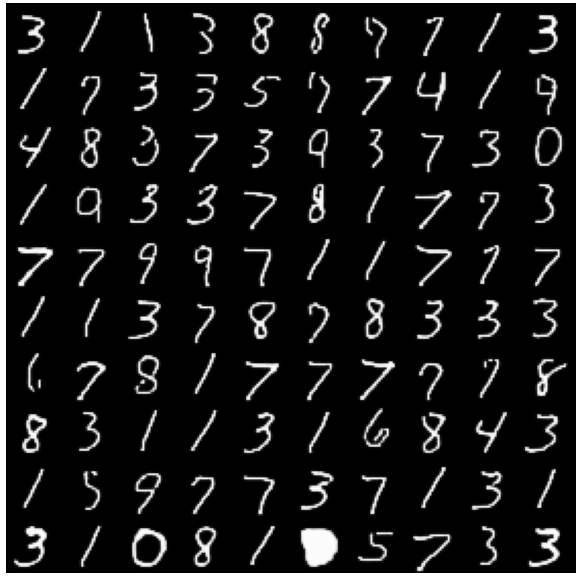 3 1 1 3 8 8 7 7 1 3
1 7 3 3 5 7 7 4 1 9
4 8 3 7 3 9 3 7 3 0
1 9 3 3 7 8 1 7 7 3
7 7 9 9 7 1 1 7 7 7
1 1 3 7 8 7 8 3 3 3
7 8 1 7 7 7 7 7 8
8 3 1 1 3 1 6 8 4 3
1 5 9 7 7 3 7 1 3 1
3 1 0 8 1 5 7 3 3